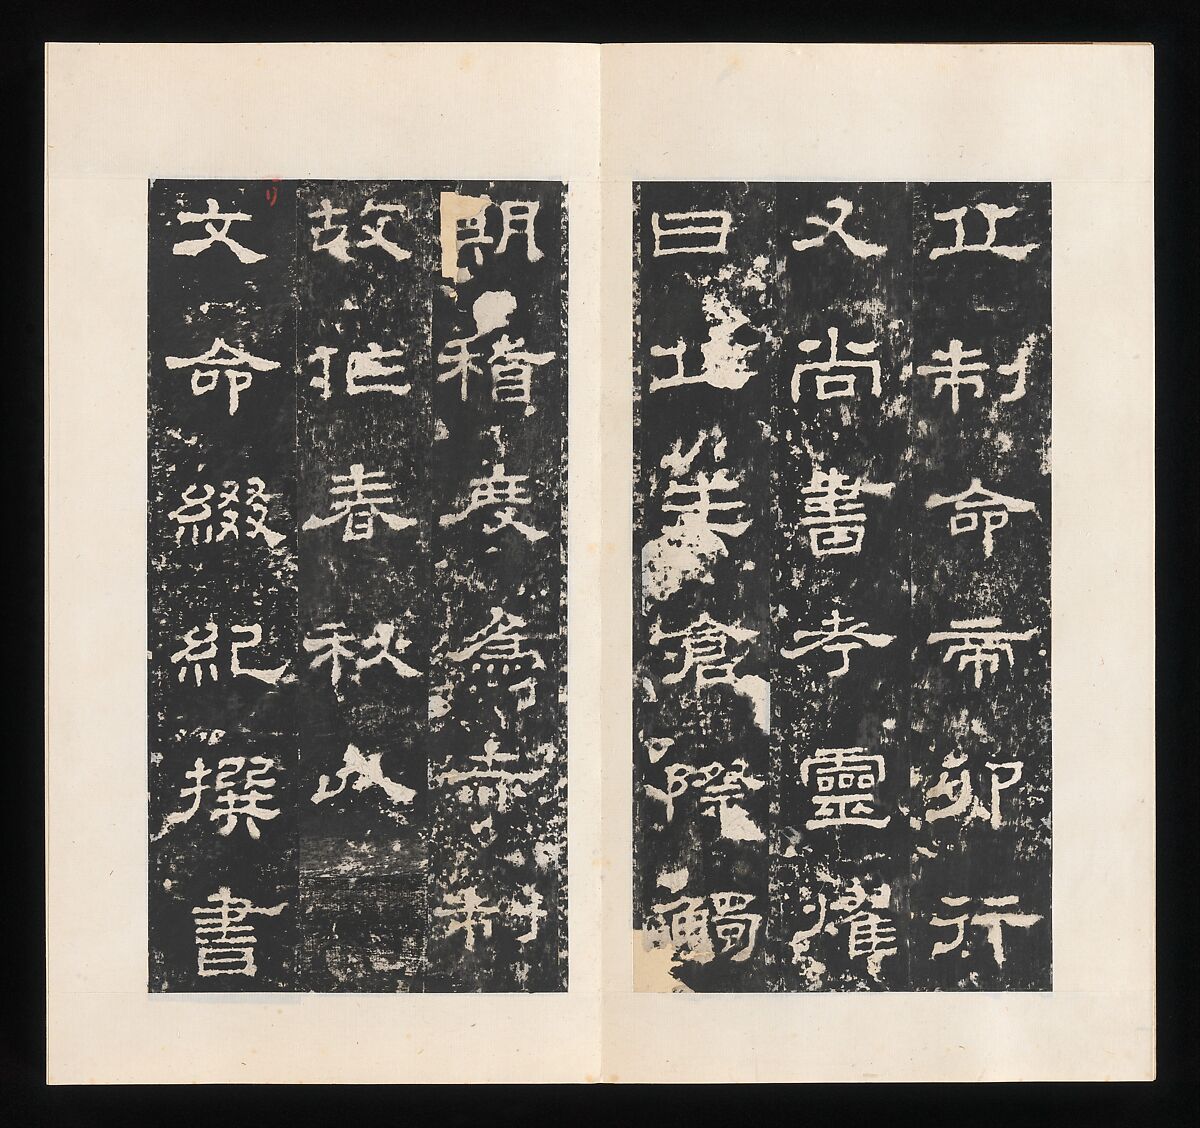 丘制命帝卯行
又尚書考靈燿
曰丘生倉際觸
期稽度為赤制
故作春秋以
文命綴紀撰書